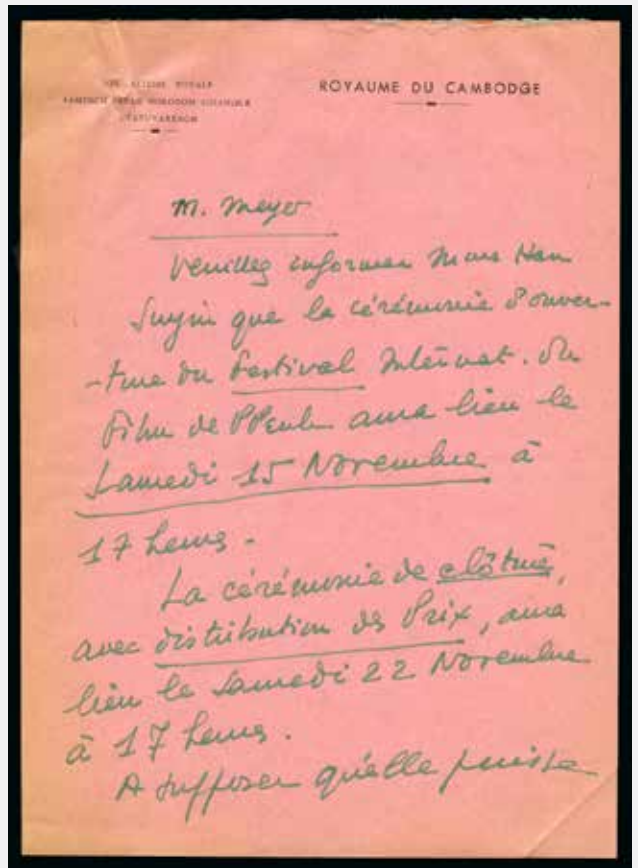 SON ALTESSE ROYALE
SAMDECH PREAH NORODOM SIHANOUK
UPAYUVAREACH
ROYAUME DU CAMBODGE
M. Meyer
Veuillez informer Mme Han
Suyin que la cérémonie d'ouver-
-ture du Festival Internat. du
Film de PPenh aura lieu le
Samedi 15 Novembre à
17 heures.
La cérémonie de clôture,
avec distribution des Prix, aura
lieu le Samedi 22 Novembre
à 17 heures.
A supposer qu'elle puisse